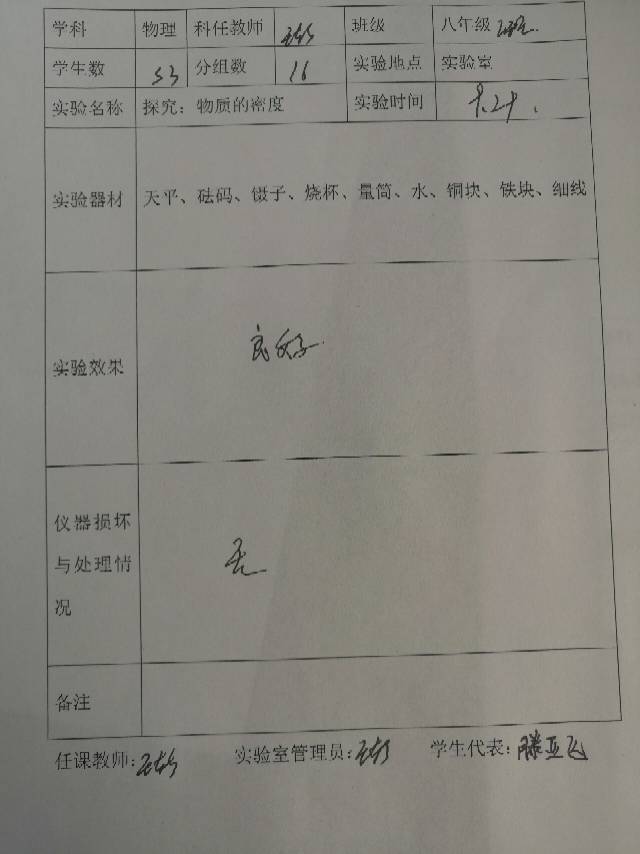 学科 物理 科任教师 班级 八年级
学生数 53 分组数 16 实验地点 实验室
实验名称 探究：物质的密度 实验时间
实验器材 天平、砝码、镊子、烧杯、量筒、水、铜块、铁块、细线
实验效果 良好
仪器损坏
与处理情
况
无
备注
任课教师: 实验室管理员: 学生代表: 滕亚飞